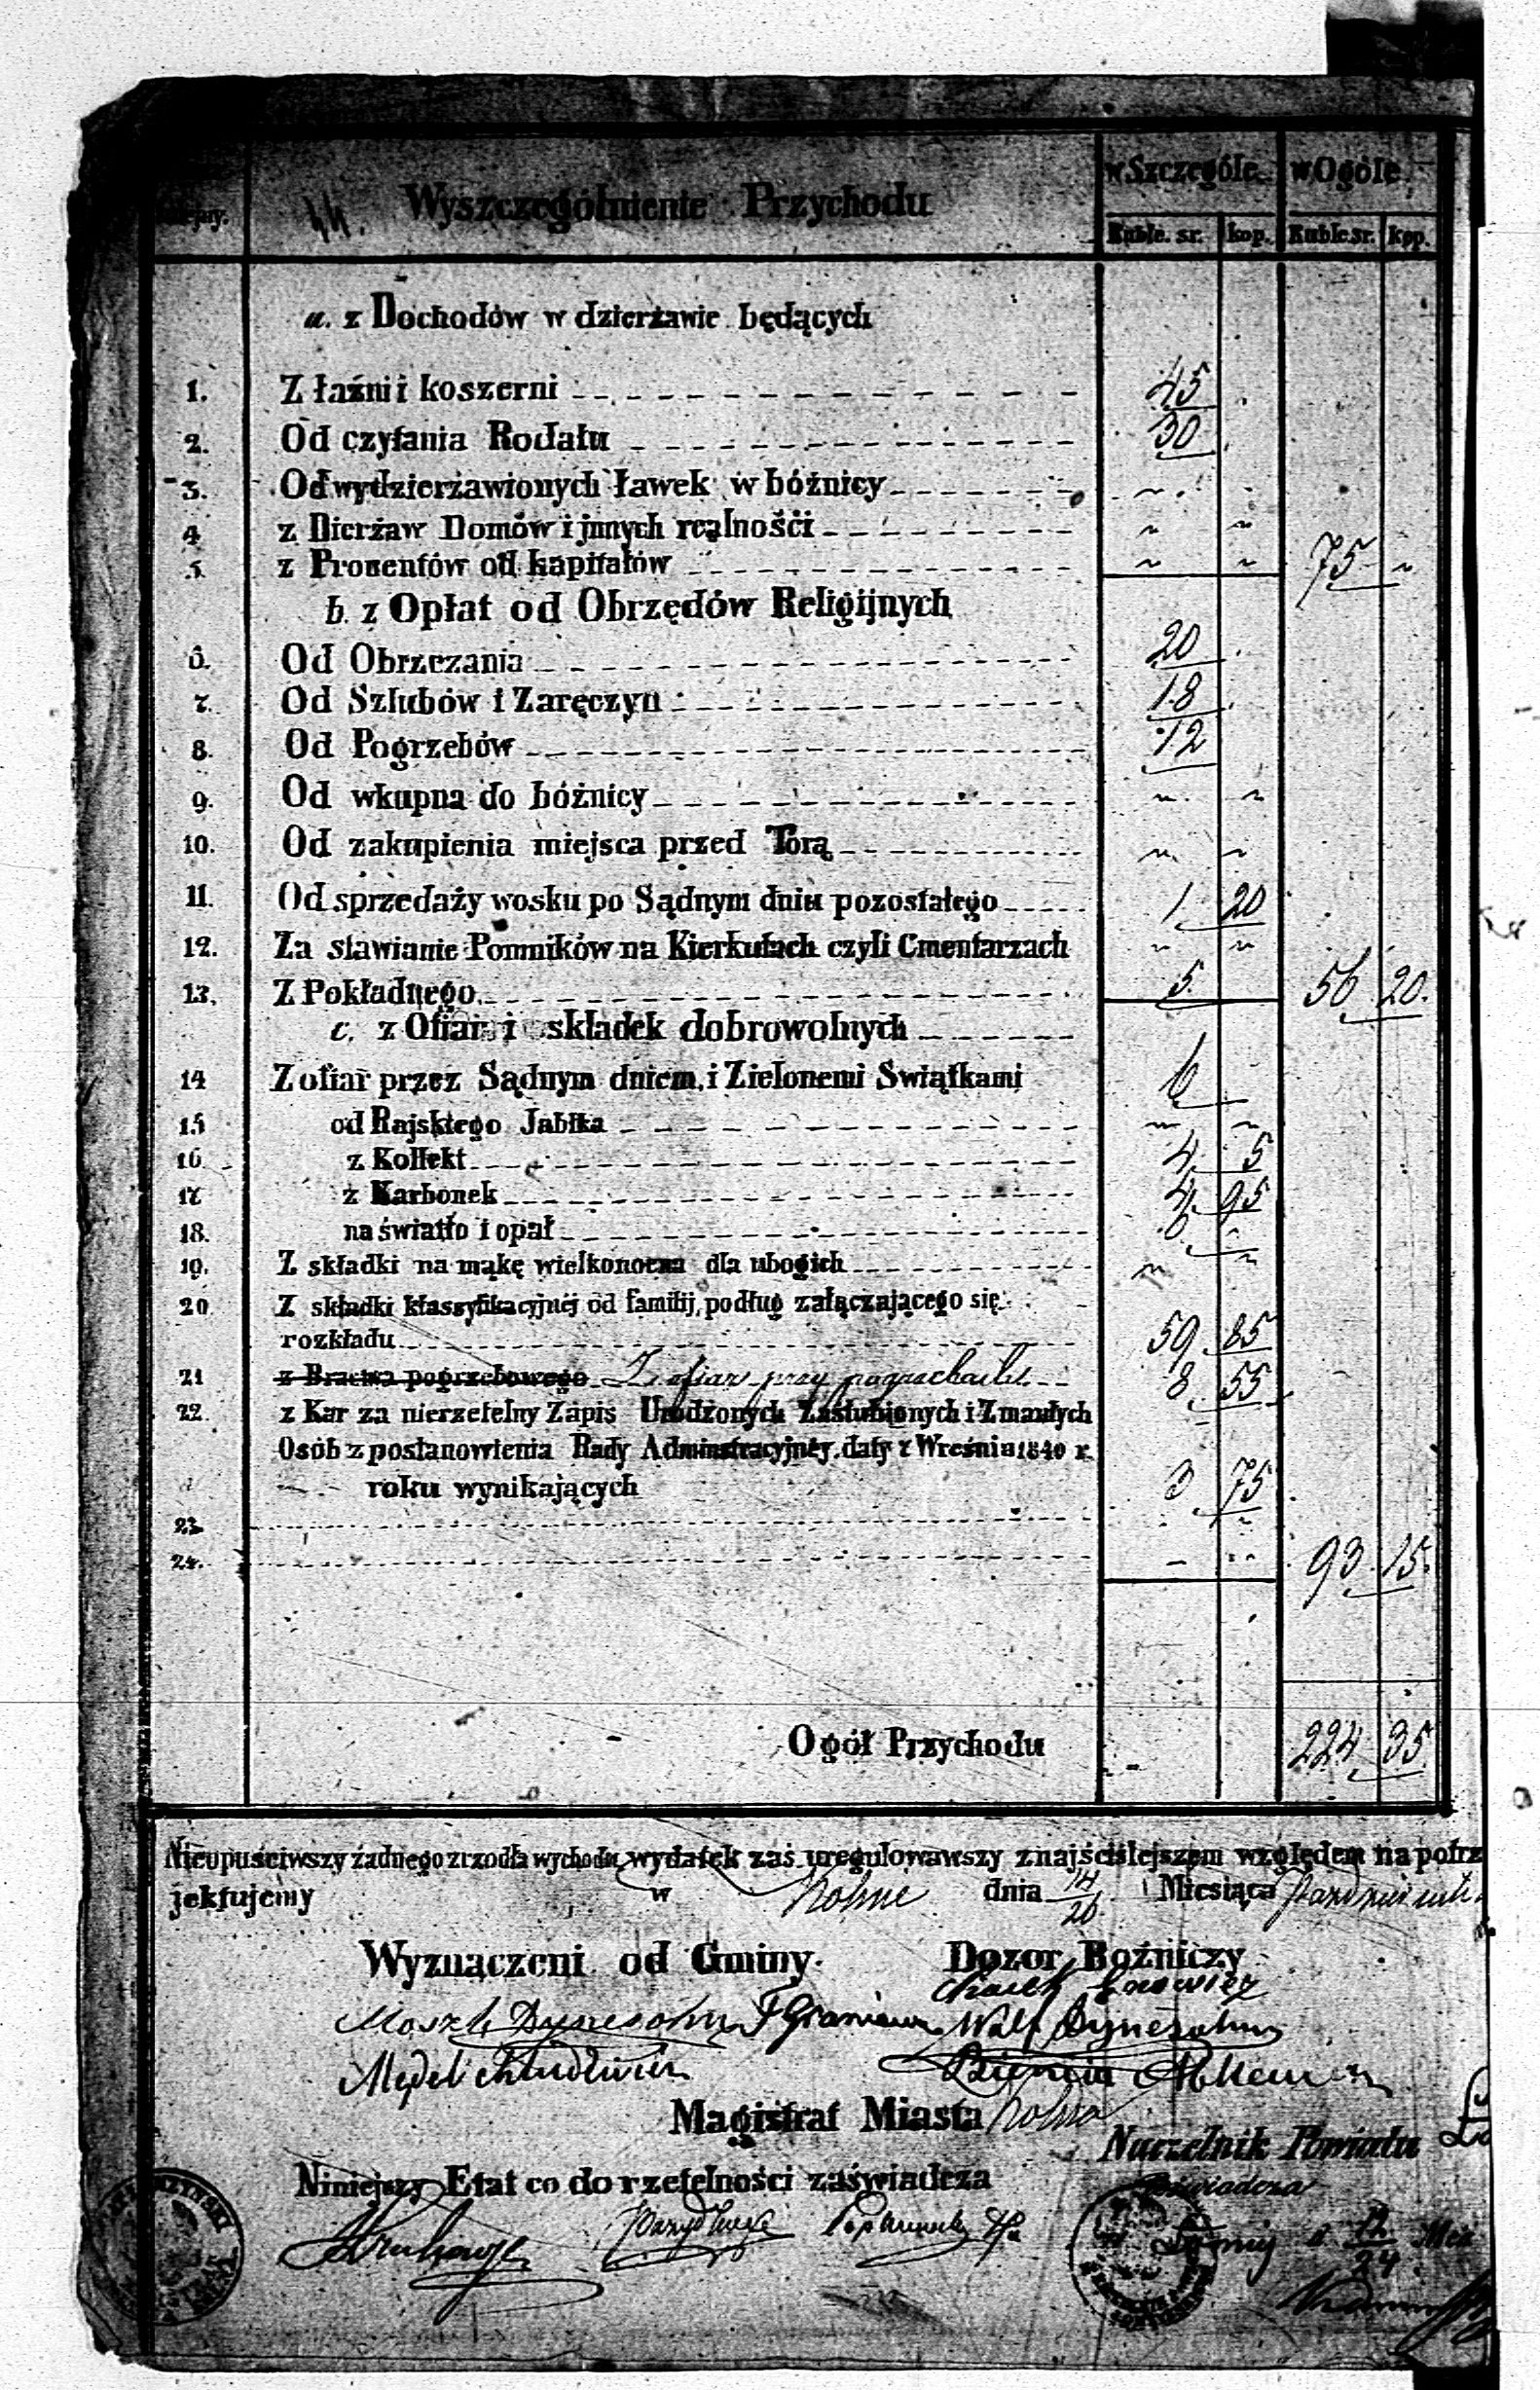 Wyszczególnienie Przychodu
w Szczególe. w Ogóle
Ruble. sr. kop. Ruble sr. kop.
a. z Dochodów w dzierżawie będących
1. Z łaźni i koszerni 45
2. Od czytania Rodału 30
3. Od wydzierżawionych ławek w bóżnicy
4 z Dierżaw Domów i jnnych realnośći
5. z Procentów od kapitałów 75
b. z Opłat od Obrzędów Religijnych
6. Od Obrzezania 20
7. Od Szlubów i Zaręczyn 18
8. Od Pogrzebów 12
9. Od wkupna do bóżnicy
10. Od zakupienia miejsca przed Torą
11. Od sprzedaży wosku po Sądnym dniu pozostałego 1 20
12. Za stawianie Pomników na Kierkutach czyli Cmentarzach
13. Z Pokładnego 5 56 20.
c. z Ofiar i składek dobrowolnych
14 Z ofiar przez Sądnym dniem, i Zielonemi Swiątkami 6
15 od Rajskiego Jabłka
16 z Kollekt 4 5
17 z Karbonek 4 95
18. na światło i opał 6
19. Z składki na mąkę wielkonocna dla ubogich
20 Z składki klassyfikacyjnéj od familij, podług załączającego się
rozkładu 59 85
21 z Bractwa pogrzebowego Z ofiar przy pogrzebach 8 55
22. z Kar za nierzetelny Zapis Urodzonych Zaślubionych i Zmarłych
Osób z postanowienia Rady Adminstracyjnéy. daty 7 Wreśnia 1840 r.
roku wynikających 3 75
23
24. 93 15
Ogół Przychodu 224 35
Nieopuściwszy żadnego zrzodła wychodu wydatek zaś uregulowawszy z najściślejszem względem na potrz
jektujemy w Kolnie dnia 14/26 Miesiąca
Wyznączeni od Gminy. Dozor Bożniczy
Wolf
Magistrat Miasta Kolna
Naczelnik Powiatu
Niniejszy Etat co do rzetelności zaświadcza
Poświadcza
12/24